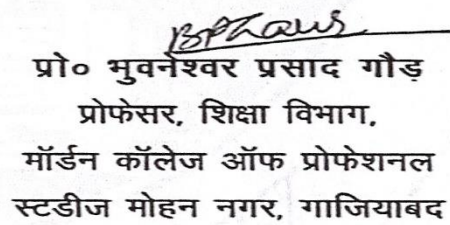 प्रो० भुवनेश्वर प्रसाद गौड़
प्रोफेसर, शिक्षा विभाग,
मॉर्डन कॉलेज ऑफ प्रोफेशनल
स्टडीज मोहन नगर, गाजियाबद